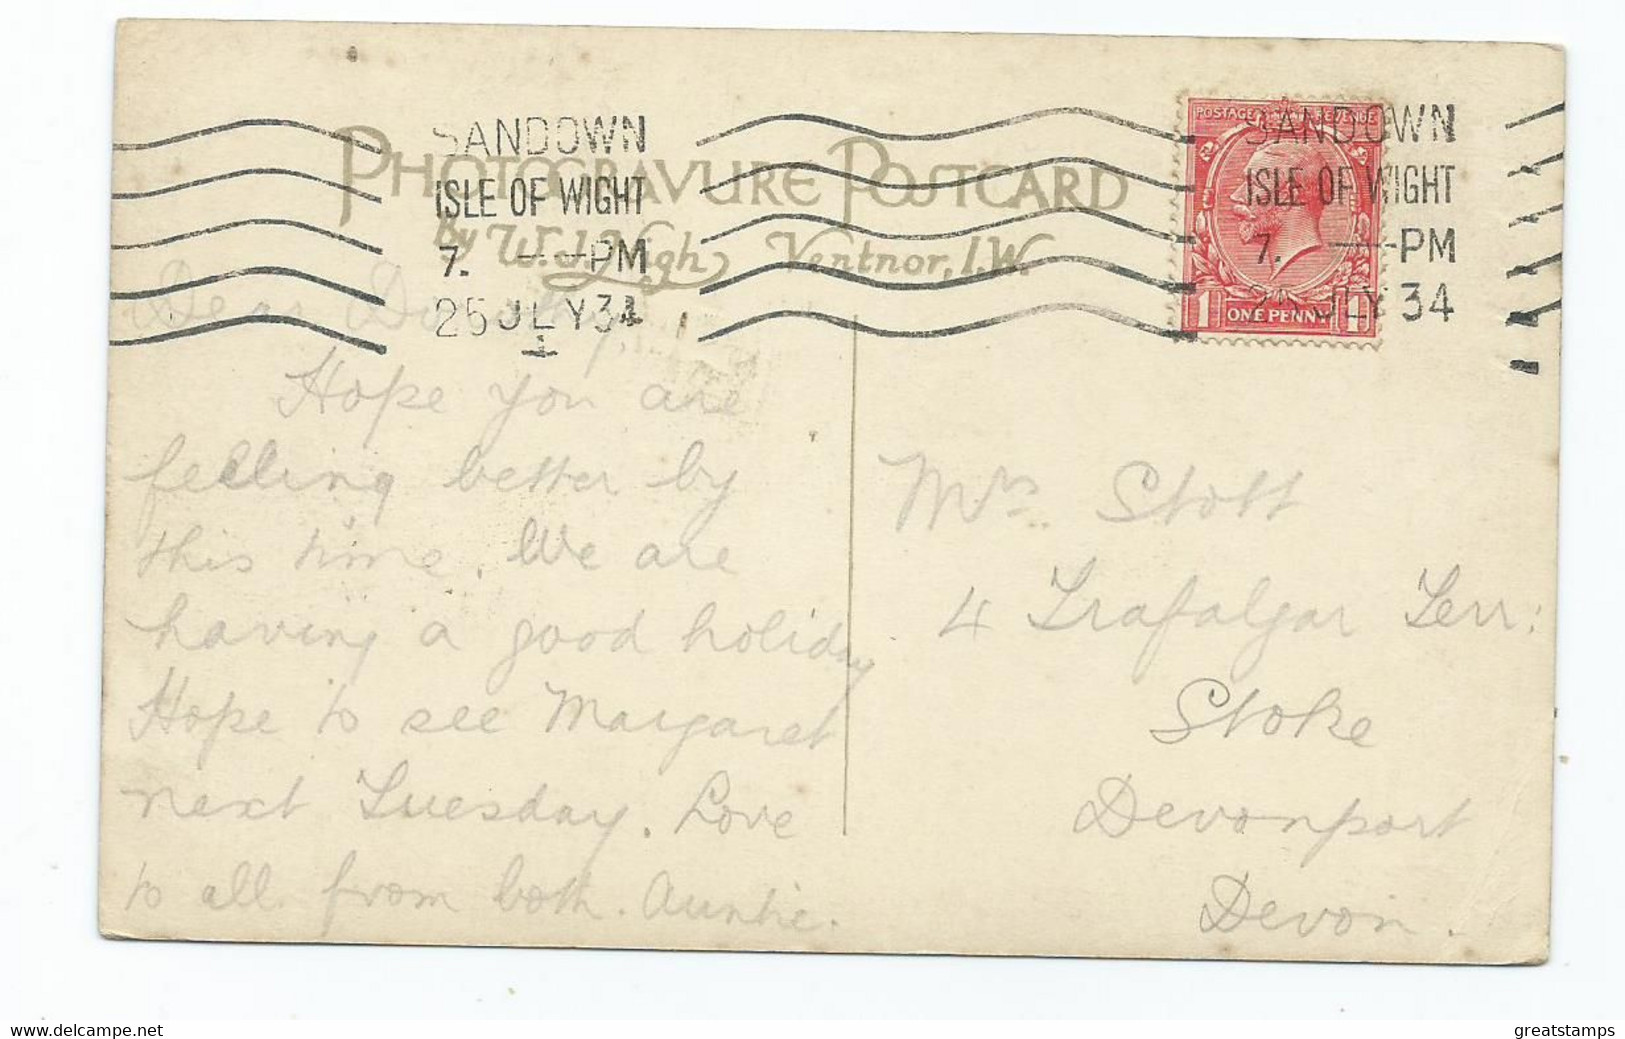 SANDOWN
ISLE OF WIGHT
7. PM
25 JLY 34
PHOTOGRAVURE POSTCARD
By W. J. Nigh, Ventnor, I.W.
POSTAGE REVENUE
1 ONE PENNY 1
SANDOWN
ISLE OF WIGHT
7. PM
25 JLY 34
Dear Dorothy,
Hope you are
feeling better by
this time. We are
having a good holiday
Hope to see Margaret
next Tuesday. Love
to all from both. Auntie.
Mrs. Stott
4 Trafalgar Terr:
Stoke
Devonport
Devon.
www.delcampe.net
greatstamps